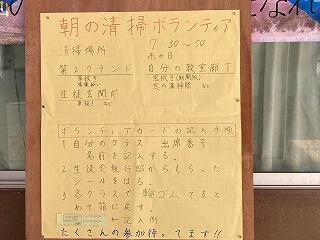 朝の清掃ボランティア
7:30〜50
清掃場所
雨の日
第2グランド
自分の教室廊下
草抜き
窓拭き(新聞紙)
窓の清掃 etc
生徒玄関前
草抜き etc
ボランティアカードの記入手順
1 自分のクラス 出席番号
名前を記入する。
2 生徒会執行部からもらった
シールをはる。
3 各クラスで輪ゴムでまと
めて箱に戻す。
←記入例
たくさんの参加待ってます!!